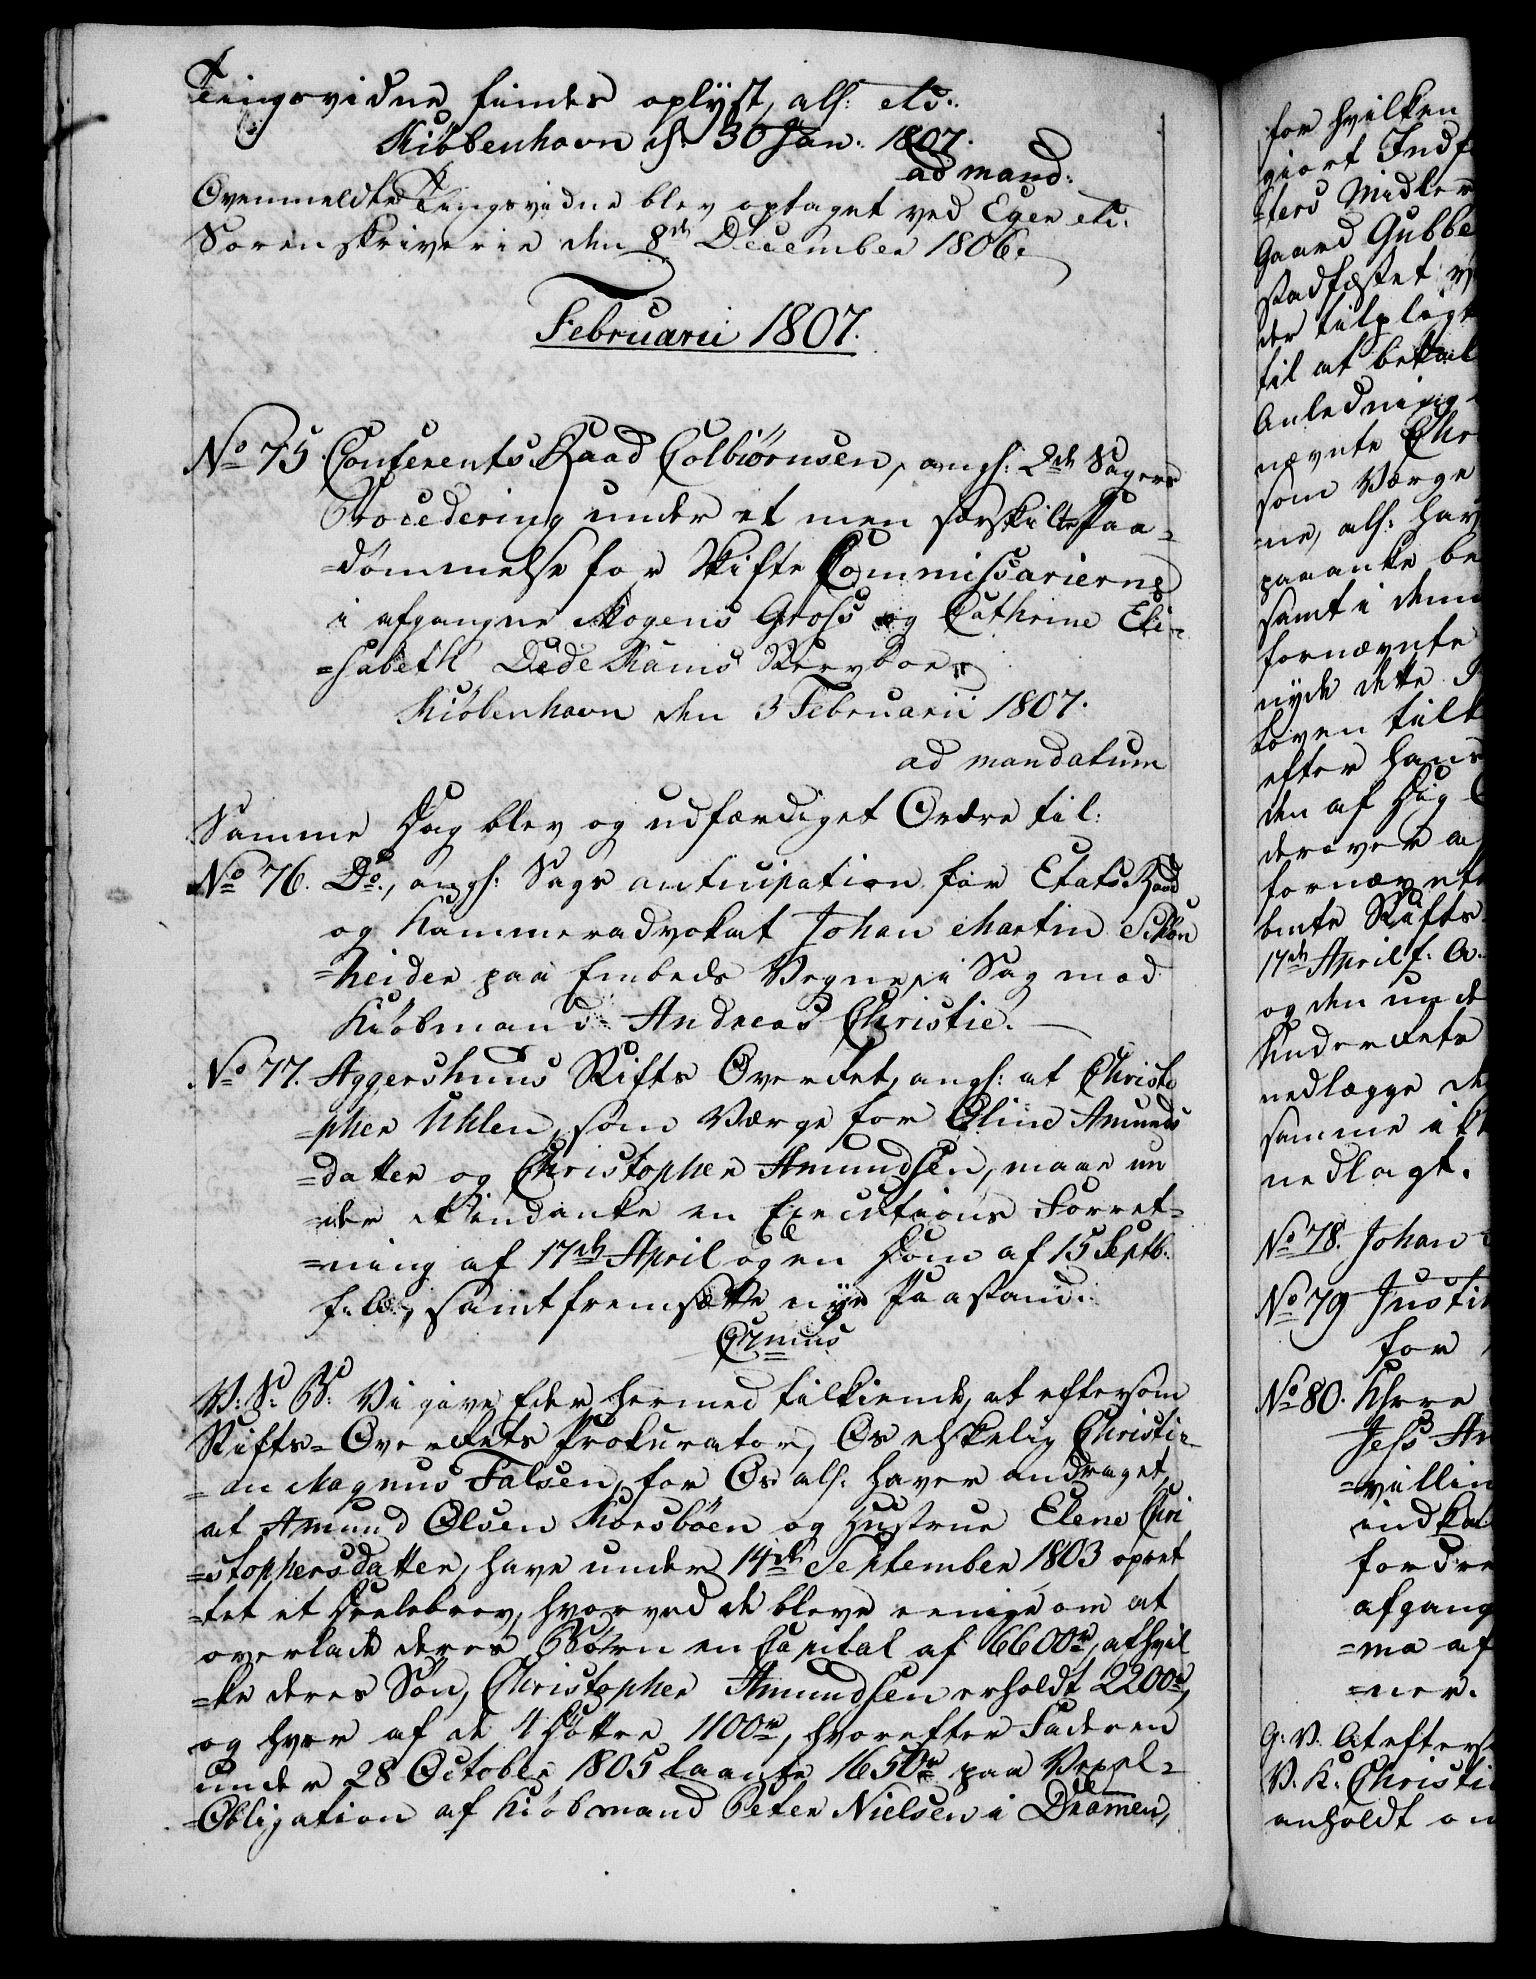 Tingsvidne findes oplyst, als: etc:
Kiöbenhavn d: 30 Jan: 1807.
ad mand:
Ovenmeldte Tingsvidne blev optaget ved Eger etc:
Sorenskriverie den 8de December 1806.
Februarii 1807.
No 75. Conferents Raad Colbiörnsen, angl: 2de Sagers
Procedering under et men særskilte Paa-
=dömmelse for Skifte Commissarierne
i afgangne Mogens Gross og Cathrine Eli-
=sabeth Dedekams Sterboer
Kiöbenhavn den 3 Februarii 1807.
ad mandatum
Samme Dag blev og udfærdiget Ordre til:
No 76. Do., angl: Sags anticipation for Etats Raad
og Kammeradvokat Johan Martin Schön
=heider paa Embeds Vegne, i Sag mod
Kiöbmand Andreas Christie.
No 77. Aggershuus Stifts Overret, angl: at Christo
=pher Uhlen, som Værge for Eline Amunds
=datter og Christopher Amundsen, maae un
=der indanke en Executions Forret-
=ning af 17de April og en Dom af 15 Septb:
f: A:, samt fremsætte nye Paastand.
C7mus
V: S: B: Vi give Eder hermed tilkiende, at eftersom
Stifts-Overrets Prokurator, Os elskelig Christi-
=an Magnus Falsen, for Os als: haver andraget,
at Amund Olsen Korsböen og Hustrue Elene Chri
=stophersdatter, have under 14de September 1803 opret
=tet et Deelebrev, hvorved de bleve eenige om at
overlade deres Börn en Capital af 6600 rd, af hvil
=ke deres Sön, Christopher Amundsen erholdt 2200 rd,
og hver af de 4 Döttre 1100 rd, hvorefter Faderen
under 28 October 1805 laante 1650 rd paa Vexel-
=Obligation af Kiöbmand Peter Nielsen i Dramen,
for hvilken
giort Indf
=ters Midler
Gaard Gubbe
stadfæstet
der tilpligt
til at betal
Anledning
nævnte Chr
som Værge
=ne, als: hav
paaanke
samt i
fornævnte
nyde dette
Loven
efter hans
den af Dig
derover
fornævnte
bente Stifts
17de April f: A:
og den unde
Underrets
nedlægge
samme ik
nedlagt.
No 78. Johan
No 79 Justi
for
No 80. Khrre
Jess An
=villin
indkal
fordre
afgang
=ma af
=ner.
G: V: At efters
V: K: Christi
anholdt om